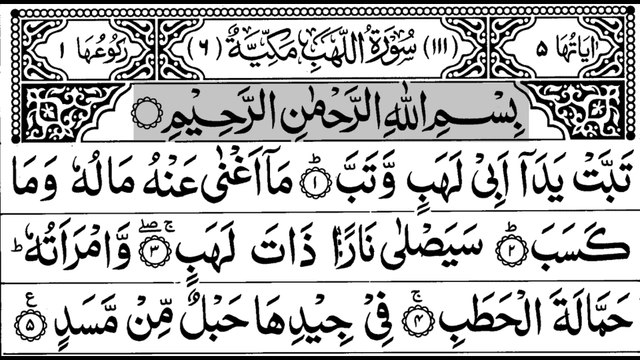 اٰیَاتُهَا ۵ (۱۱۱) سُوْرَةُ اللَّهَبِ مَكِّیَّةٌ (۶) رُكُوْعُهَا ۱
بِسْمِ اللّٰهِ الرَّحْمٰنِ الرَّحِیْمِ ۝
تَبَّتْ یَدَاۤ اَبِیْ لَهَبٍ وَّتَبَّ ؕ۝۱ مَاۤ اَغْنٰی عَنْهُ مَالُهٗ وَمَا
كَسَبَ ؕ۝۲ سَیَصْلٰی نَارًا ذَاتَ لَهَبٍ ۚۖ۝۳ وَّامْرَاَتُهٗ ؕ
حَمَّالَةَ الْحَطَبِ ۚ۝۴ فِیْ جِیْدِهَا حَبْلٌ مِّنْ مَّسَدٍ ۝۵ ع